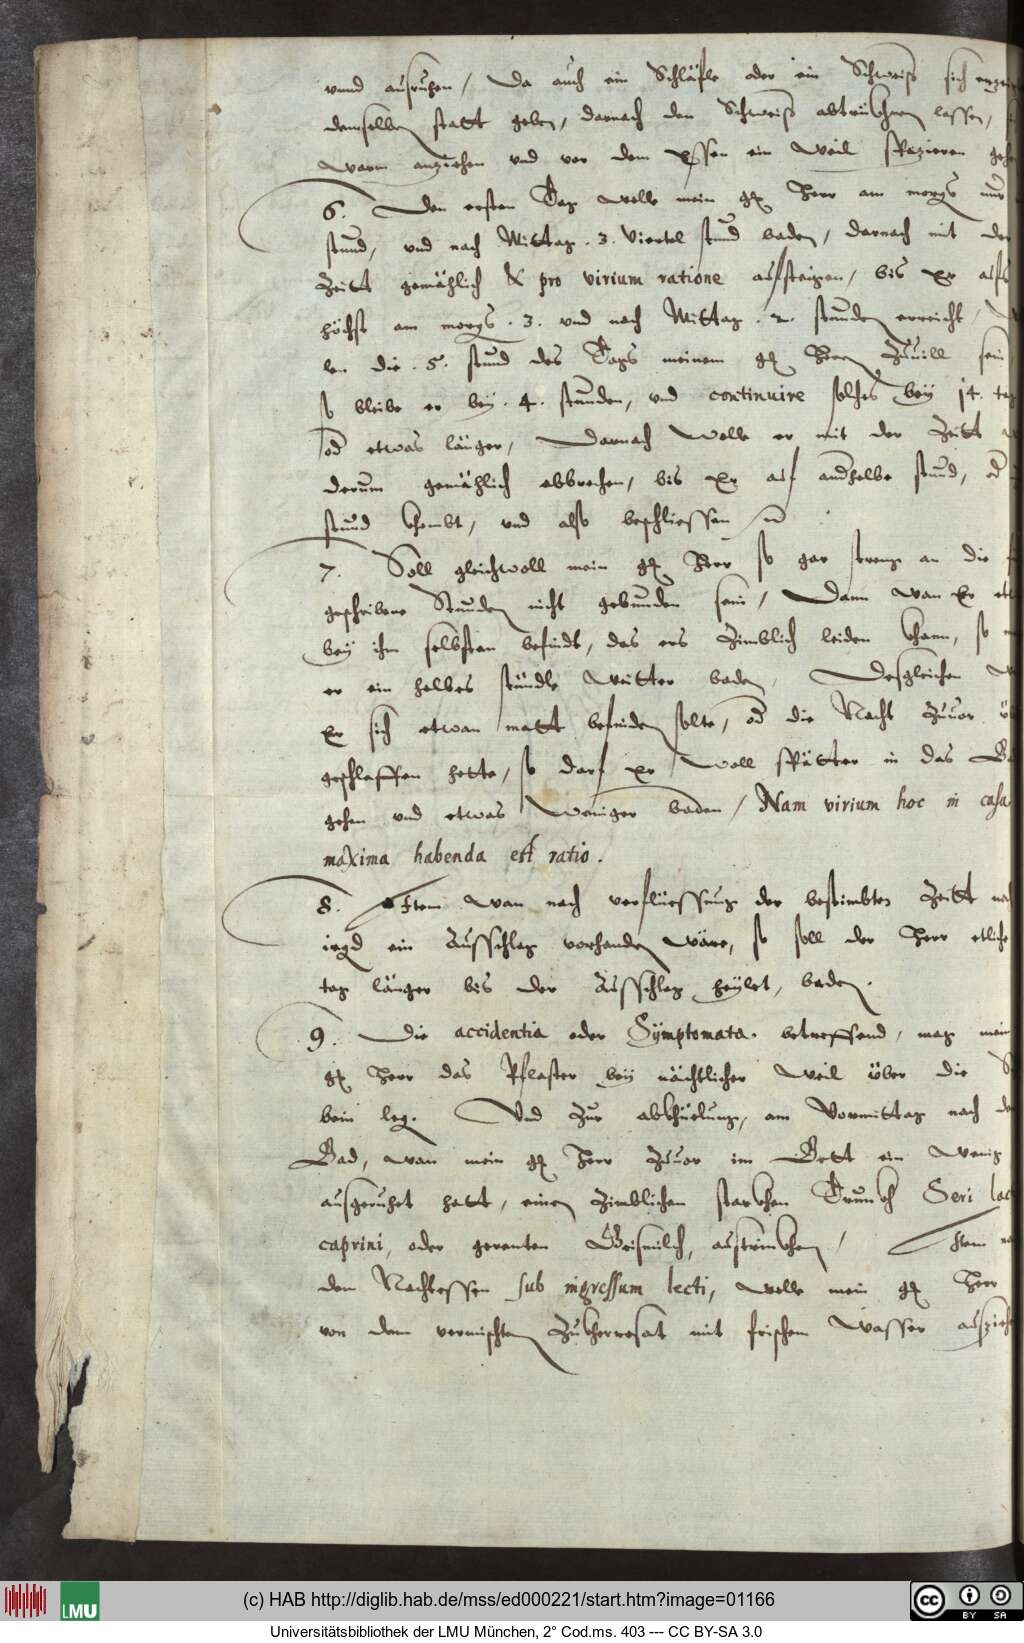 vnnd ausruhen / Da auch ein Schläfle oder ein Schweiß sich
demselben statt geben, darnach den Schweiß abtrückhnen lassen,
warm anziehen vnd vor dem essen ein weil spazieren
6. Den ersten Tag wolle mein gn Herr am morgs nur
stund, vnd nach Mittag .3. viertel stund baden, darnach mit der
Zeitt gemählich & pro virium ratione aufsteigen, bis Er aufs
höchst am morgs .3. vnd nach Mittag .2. stunden erreicht,
len die .5. stund des Tags meinem gn Herrn Zuuill sein
so bleibe er bey .4. stunden, vnd continuire solches bey 14. tag
od etwas länger, Darnach wolle er mit der Zeitt
derum gemählich abbrechen, bis Er auf andhalbe stund, od
stund khombt, vnd also beschliessen
7. Soll gleichwoll mein gn Herr so gar streng an die
geschribene Stunden nicht gebunden sein, Dann wan Er
bey ihm selbsten befindt, das ers Zimblich leiden khann, so
er ein halbes stündle weitter baden, Desgleichen
Er sich etwan matt befinden solte, od die Nacht Zuuor
geschlaffen hette, so darf er woll spätter in das
gehen vnd etwas weniger baden / Nam virium hoc in casu
maxima habenda est ratio.
8. Item wan nach verflüessung der bestimbten Zeitt
irgd ein Ausschlag vorhanden wäre, so soll der Herr etliche
tag länger bis der Ausschlag heylet, baden.
9. Die accidentia oder Symptomata betreffend, mag mein
gn Herr das Pflaster bey nächtlicher weil über die
bein leg. Vnd zur abkhüelung, am Vormittag nach
Bad, wan mein gn Herr Zuuor im Bett ein wenig
ausgeruhet hatt, einen Zimblichen starckhen Trunckh Seri lac
caprini, oder gerenten Geismilch, austrinckhen / Item
dem Nachtessen sub ingressum lecti, wolle mein gn Herr
von dem vermischten Zuckherrosat mit frischem wasser
(c) HAB http://diglib.hab.de/mss/ed000221/start.htm?image=01166
LMU
BY SA
Universitätsbibliothek der LMU München, 2° Cod.ms. 403 --- CC BY-SA 3.0